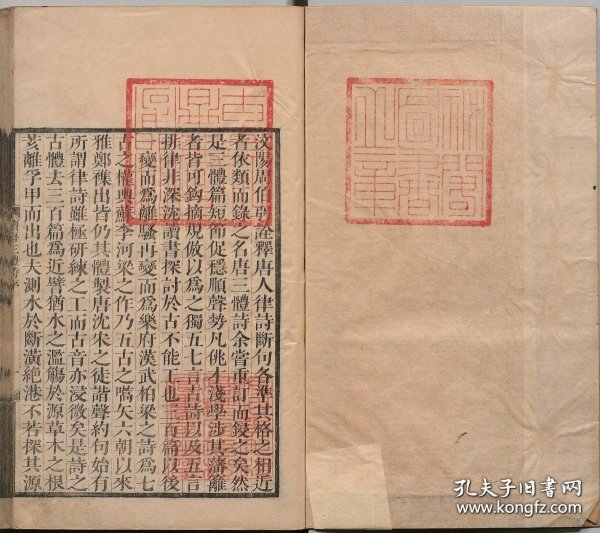 汶陽周伯弜詮釋唐人律詩斷句各準其格之相近
者依類而錄之名唐三體詩余嘗重訂而鋟之矣然
是三體篇短節促穩順聲勢凡佻才淺學涉其藩離
者皆可鈎摘規倣以為之獨五七言古詩以及五言
排律非深沈讀書探討於古不能工也三百篇以後
變而為離騷再變而為樂府漢武柏梁之詩為七
古之權輿蘇李河梁之作乃五古之嚆矢六朝以來
雅鄭襍出皆仍其體製唐沈宋之徒諧聲約句始有
所謂律詩雖極研練之工而古音亦浸微矣是詩之
古體去三百篇為近譬猶水之濫觴於源草木之根
荄離孚甲而出也夫測水於斷潢絕港不若探其源
孔夫子旧书网
www.kongfz.com